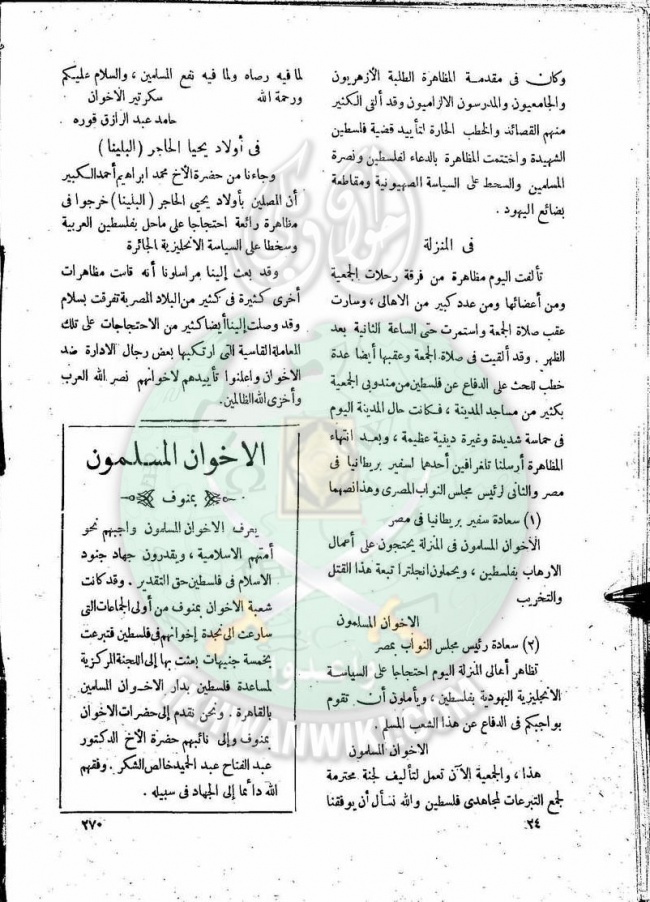 وكان فى مقدمة المظاهرة الطلبة الأزهريون
والجامعيون والمدرسون الالزاميون وقد ألقى الكثير
منهم القصائد والخطب الحارة لتأييد قضية فلسطين
الشهيدة واختتمت المظاهرة بالدعاء لفلسطين ونصرة
المسلمين والسخط على السياسة الصهيونية ومقاطعة
بضائع اليهود .
فى المنزلة
تألفت اليوم مظاهرة من فرقة رحلات الجمعية
ومن أعضائها ومن عدد كبير من الاهالى ، وسارت
عقب صلاة الجمعة واستمرت حتى الساعة الثانية بعد
الظهر . وقد ألقيت فى صلاة الجمعة وعقبها أيضا عدة
خطب للحث على الدفاع عن فلسطين من مندوبى الجمعية
بكثير من مساجد المدينة ، فكانت حال المدينة اليوم
فى حماسة شديدة وغيرة دينية عظيمة ، وبعد انتهاء
المظاهرة أرسلنا تلغرافين أحدهما لسفير بريطانيا فى
مصر والثانى لرئيس مجلس النواب المصرى وهذا نصهما
(١) سعادة سفير بريطانيا فى مصر
الأخوان المسلمون فى المنزلة يحتجون على أعمال
الارهاب بفلسطين ، ويحملون انجلترا تبعة هذا القتل
والتخريب
الاخوان المسلمون
(٢) سعادة رئيس مجلس النواب بمصر
تظاهر أهالى المنزلة اليوم احتجاجا على السياسة
الانجليزية اليهودية بفلسطين ، ويأملون أن تقوم
بواجبكم فى الدفاع عن هذا الشعب المسلم
الاخوان المسلمون
هذا ، والجمعية الآن تعمل لتأليف لجنة محترمة
لجمع التبرعات لمجاهدى فلسطين والله نسأل أن يوفقنا
٢٤
لما فيه رضاه ولما فيه نفع المسلمين ، والسلام عليكم
ورحمة الله سكرتير الاخوان
حامد عبد الرازق قوره
فى أولاد يحيا الحاجر (البلينا)
وجاءنا من حضرة الأخ محمد ابراهيم أحمد الكبير
أن المصلين بأولاد يحيى الحاجر (البلينا) خرجوا فى
مظاهرة رائعة احتجاجا على ماحل بفلسطين العربية
وسخطا على السياسة الانجليزية الجائرة
وقد بعث إلينا مراسلونا أنه قامت مظاهرات
أخرى كثيرة فى كثير من البلاد المصرية تفرقت بسلام
وقد وصلت إلينا أيضا كثير من الاحتجاجات على تلك
المعاملة القاسية التى ارتكبها بعض رجال الادارة ضد
الاخوان واعلنوا تأييدهم لاخوانهم نصر الله العرب
وأخزى الله الظالمين .
الاخوان المسلمون
بمنوف
يعرف الاخوان المسلمون واجبهم نحو
أمتهم الاسلامية ، ويقدرون جهاد جنود
الاسلام فى فلسطين حق التقدير . وقد كانت
شعبة الاخوان بمنوف من أولى الجماعات التى
سارعت الى نجدة إخوانهم فى فلسطين فتبرعت
بخمسة جنيهات بعثت بها إلى اللجنة المركزية
لمساعدة فلسطين بدار الاخوان المسلمين
بالقاهرة . ونحن نقدم إلى حضرات الاخوان
بمنوف وإلى نائبهم حضرة الأخ الدكتور
عبد الفتاح عبد الحميد خالص الشكر . وفقهم
الله دأمما إلى الجهاد فى سبيله .
٢٧٠